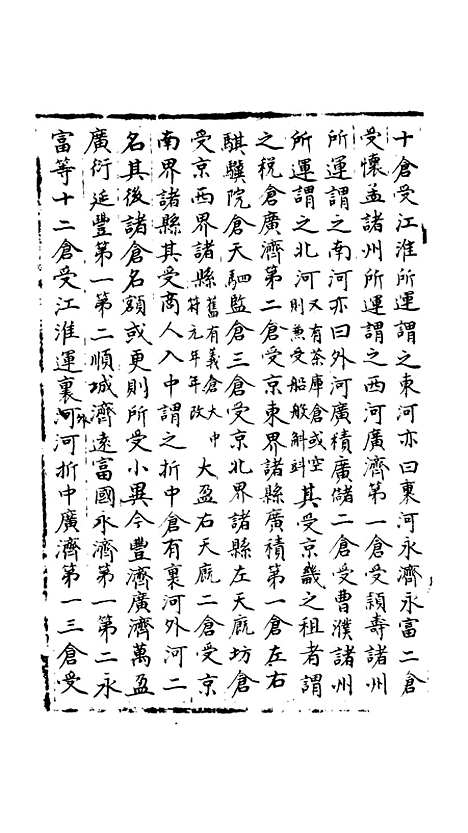 十倉受江淮所運謂之東河亦曰裏河永濟永富二倉
受懷孟諸州所運謂之西河廣濟第一倉受潁壽諸州
所運謂之南河亦曰外河廣積廣儲二倉受曹濮諸州
所運謂之北河又有茶庫倉或空則兼受船般斛㪷其受京畿之租者謂
之稅倉廣濟第二倉受京東界諸縣廣積第一倉左右
騏驥院倉天駟監倉三倉受京北界諸縣左天廄坊倉
受京西界諸縣舊有義倉大中符元年年改大盈右天廄二倉受京
南界諸縣其受商人入中謂之折中倉有裏河外河二
名其後諸倉名額或更則所受小異今豐濟廣濟萬盈
廣衍延豐第一第二順城濟遠富國永濟第一第二永
富等十二倉受江淮運裏河外河折中廣濟第一三倉受